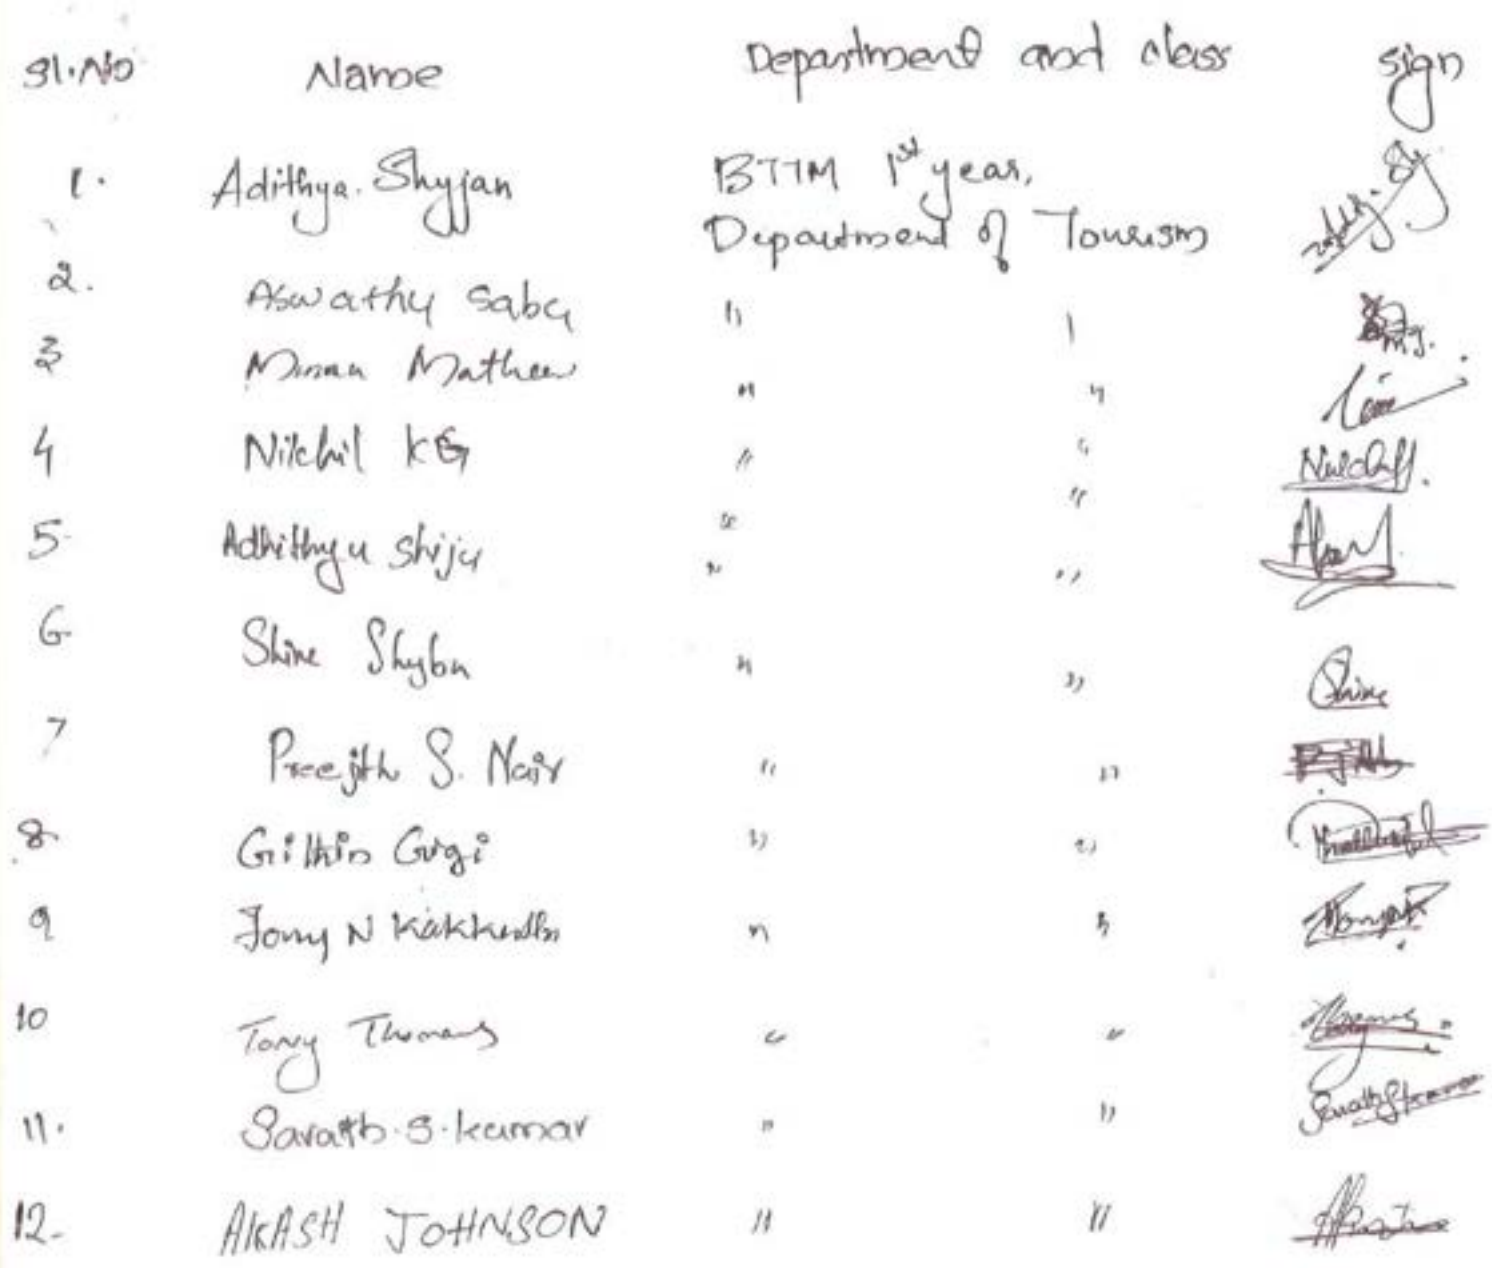 Sl.No Name Department and class sign
1. Adithya. Shyjan BTTM 1st year,
Department of Tourism
2. Aswathy Sabu " "
3 Mathew " "
4 Nikhil KG " "
5. Adhithya Shiju " "
6. Shine Shybu " " Shine
7 Preejith S. Nair " "
8. Githin Gigi " "
9 Tony N " "
10 Tony Thomas " "
11. Sarath.S.kumar " "
12. AKASH JOHNSON " "